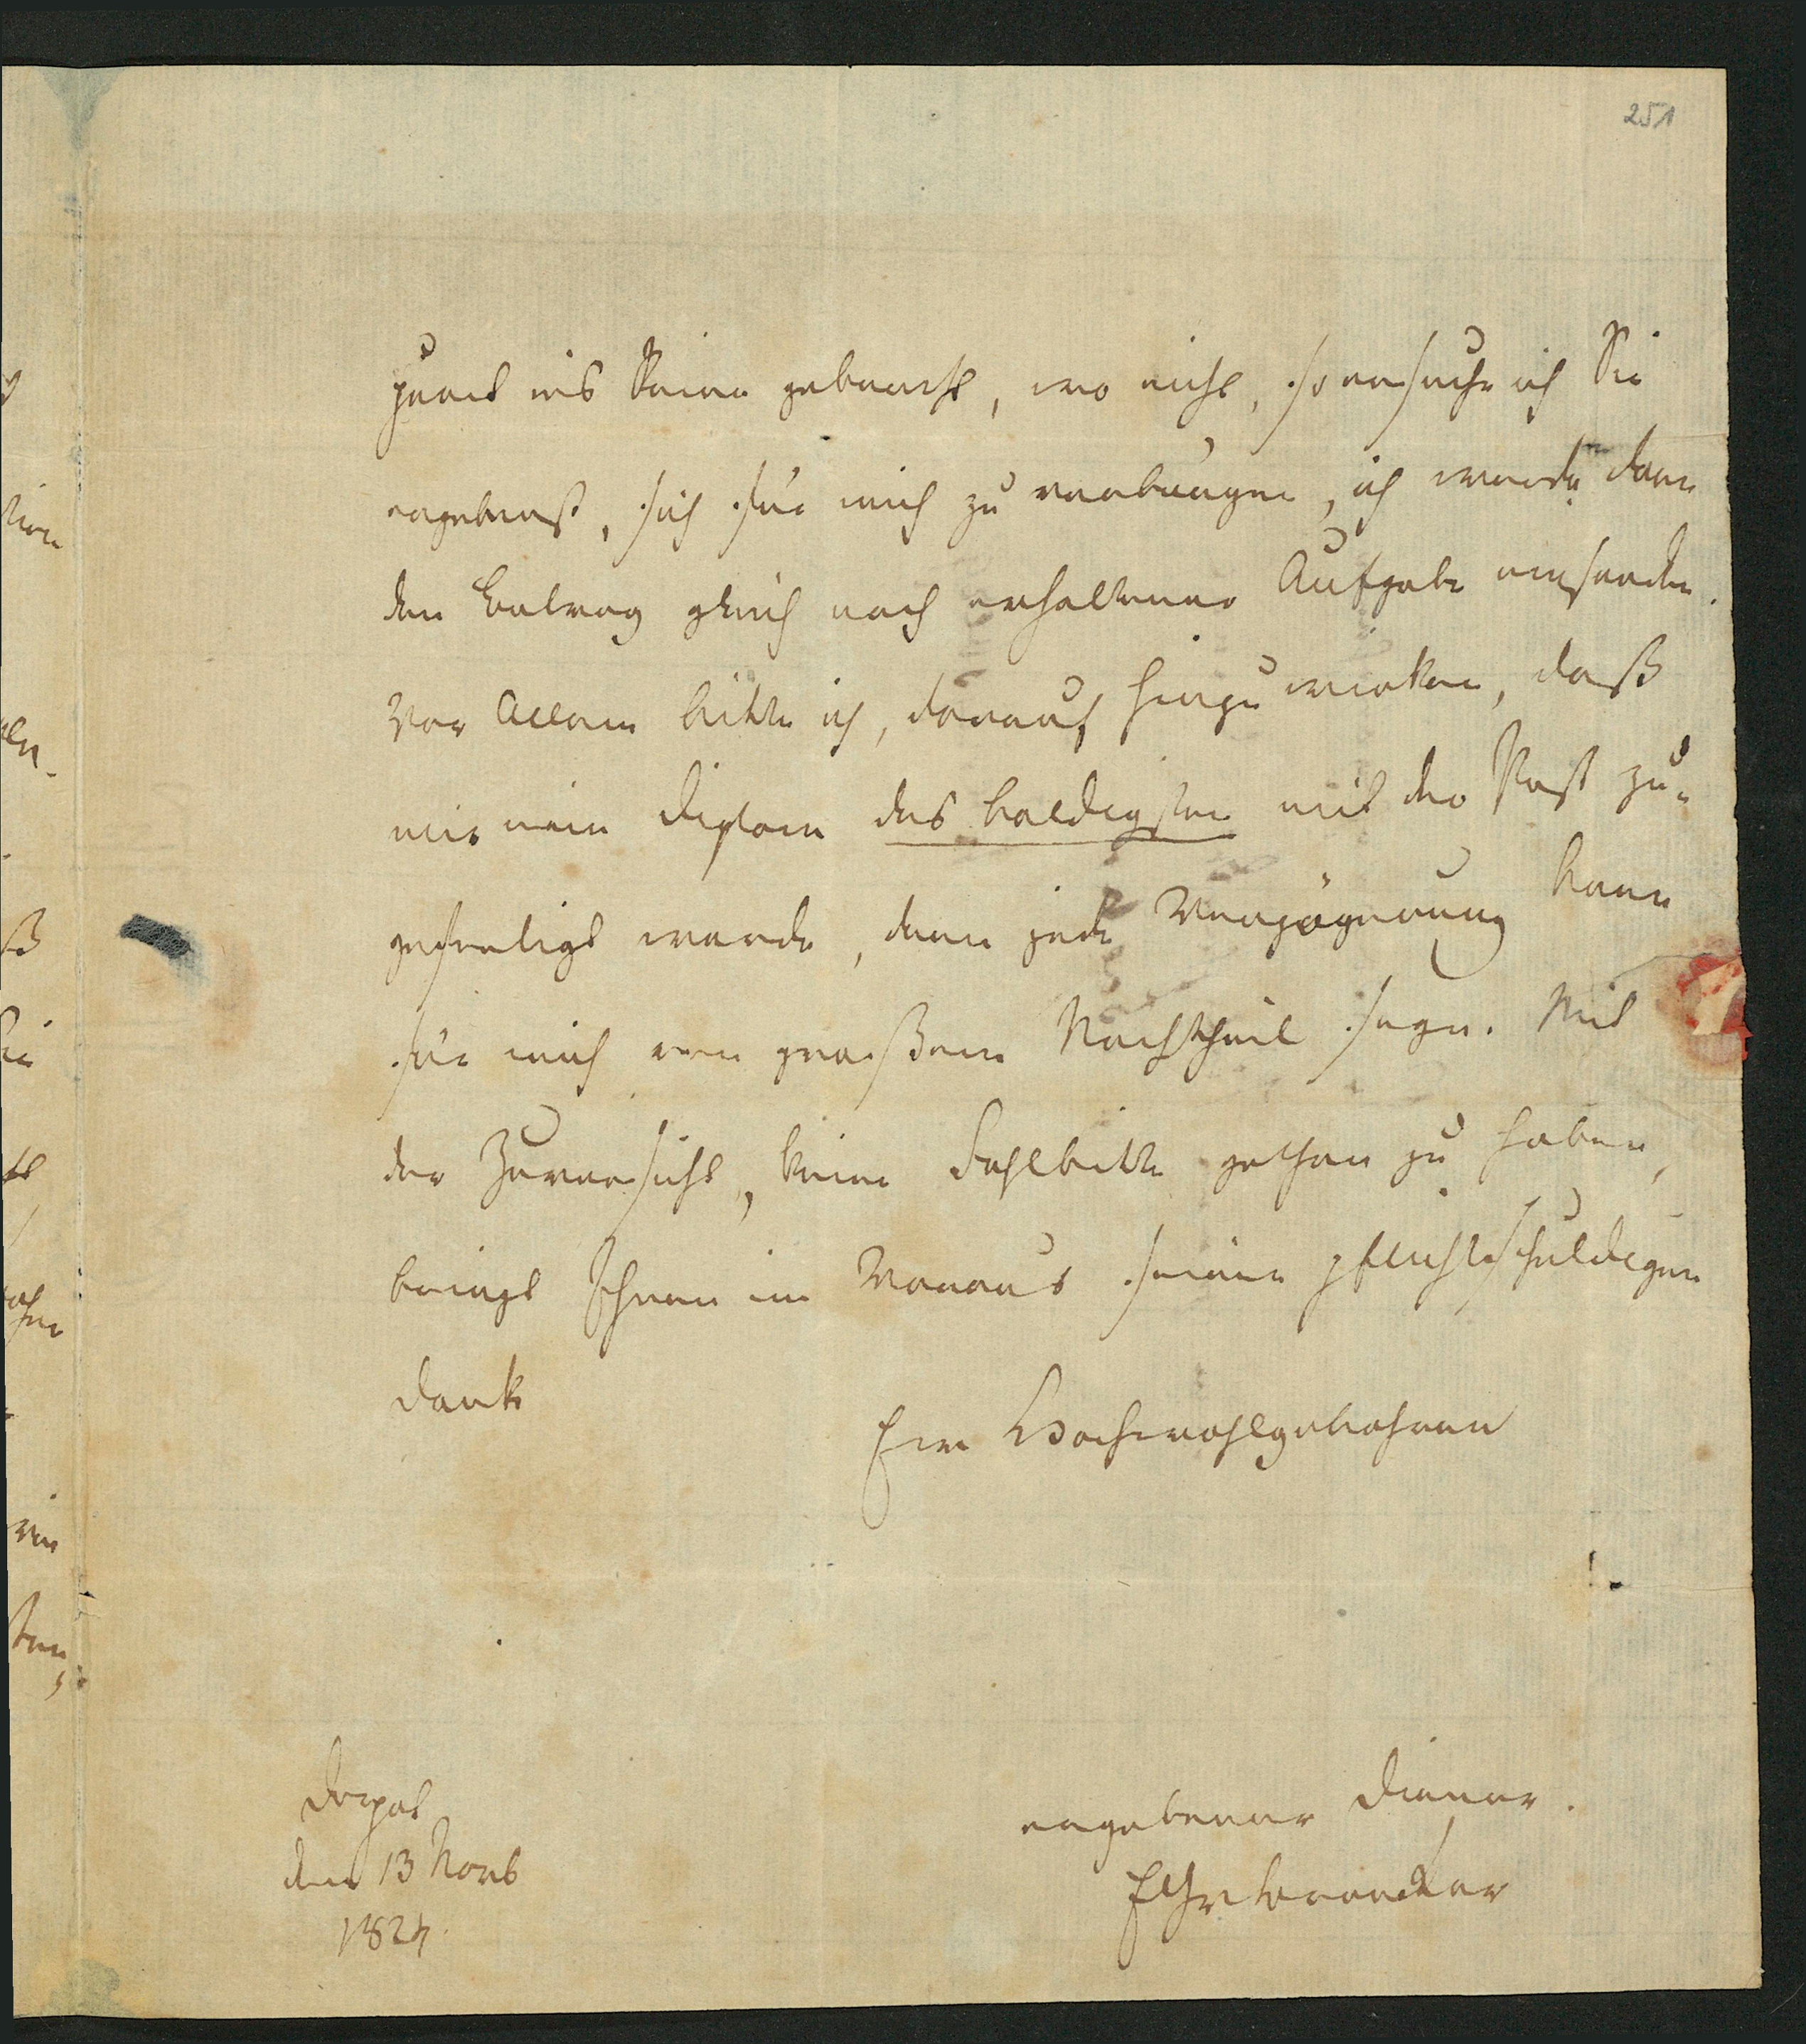 251
zuerst ins Reine gebracht, wo nicht, so ersuche ich Sie
ergebenst, sich für mich zu verbürgen, ich werde dann
den Betrag gleich nach erhaltener Aufgabe einsenden.
Vor Allem bitte ich, darauf hinzuwirken, daß
mir mein Diplom des baldigsten mit der Post zu-
gefertigt werde, denn jede Verzögerung kann
für mich von großem Nachtheil seyn. Mit
der Zuversicht, keine Fehlbitte gethan zu haben,
bringt Ihnen im Voraus seinen pflichtschuldigen
Dank
Ew Hochwohlgebohren
ergebener Diener.
Dorpat
den 13 Novb
1824.